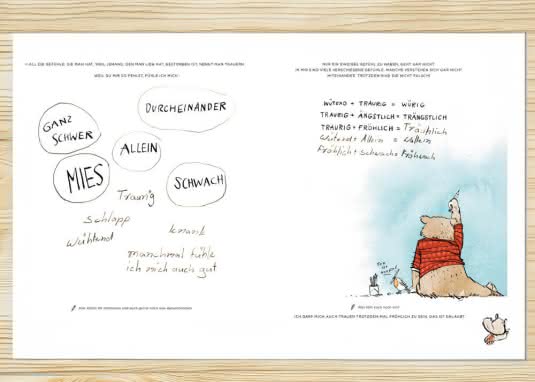 ALL DIE GEFÜHLE, DIE MAN HAT, WEIL JEMAND, DEN MAN LIEB HAT, GESTORBEN IST, NENNT MAN TRAUERN.
WEIL DU MIR SO FEHLST, FÜHLE ICH MICH:
GANZ
SCHWER
DURCHEINANDER
ALLEIN
MIES
SCHWACH
Traurig
Schlapp
krank
Wühtend
manchmal fühle
ich mich auch gut
NUR EIN EINZIGES GEFÜHL ZU HABEN, GEHT GAR NICHT.
IN MIR SIND VIELE VERSCHIEDENE GEFÜHLE. MANCHE VERSTEHEN SICH GAR NICHT
MITEINANDER. TROTZDEM SIND SIE NICHT FALSCH!
WÜTEND + TRAURIG = WÜRIG
TRAURIG + ÄNGSTLICH = TRÄNGSTLICH
TRAURIG + FRÖHLICH = Träuhlich
Wütend + Allein = Wallein
Fröhlich + Schwach = Fröhwach
ICH DARF MICH AUCH TRAUEN TROTZDEM MAL FRÖHLICH ZU SEIN. DAS IST ERLAUBT!